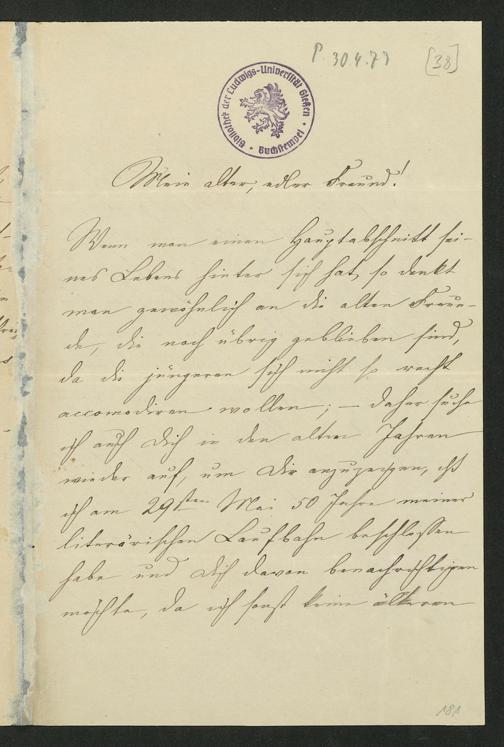 P. 30.4.77
[38]
Bibliothek der Ludwigs-Universität Gießen
Buchstempel
Mein alter, edler Freund!
Wenn man einen Hauptabschnitt sei-
nes Lebens hinter sich hat, so denkt
man gewöhnlich an die alten Freun-
de, die noch übrig geblieben sind,
da die jüngeren sich nicht so recht
accomodiren wollen; – daher suche
ich auch Dich in den alten Jahren
wieder auf, um Dir anzuzeigen, daß
ich am 29sten Mai 50 Jahre meiner
literärischen Laufbahn beschlossen
habe und Dich davon benachrichtigen
möchte, da ich sonst keine älteren
181